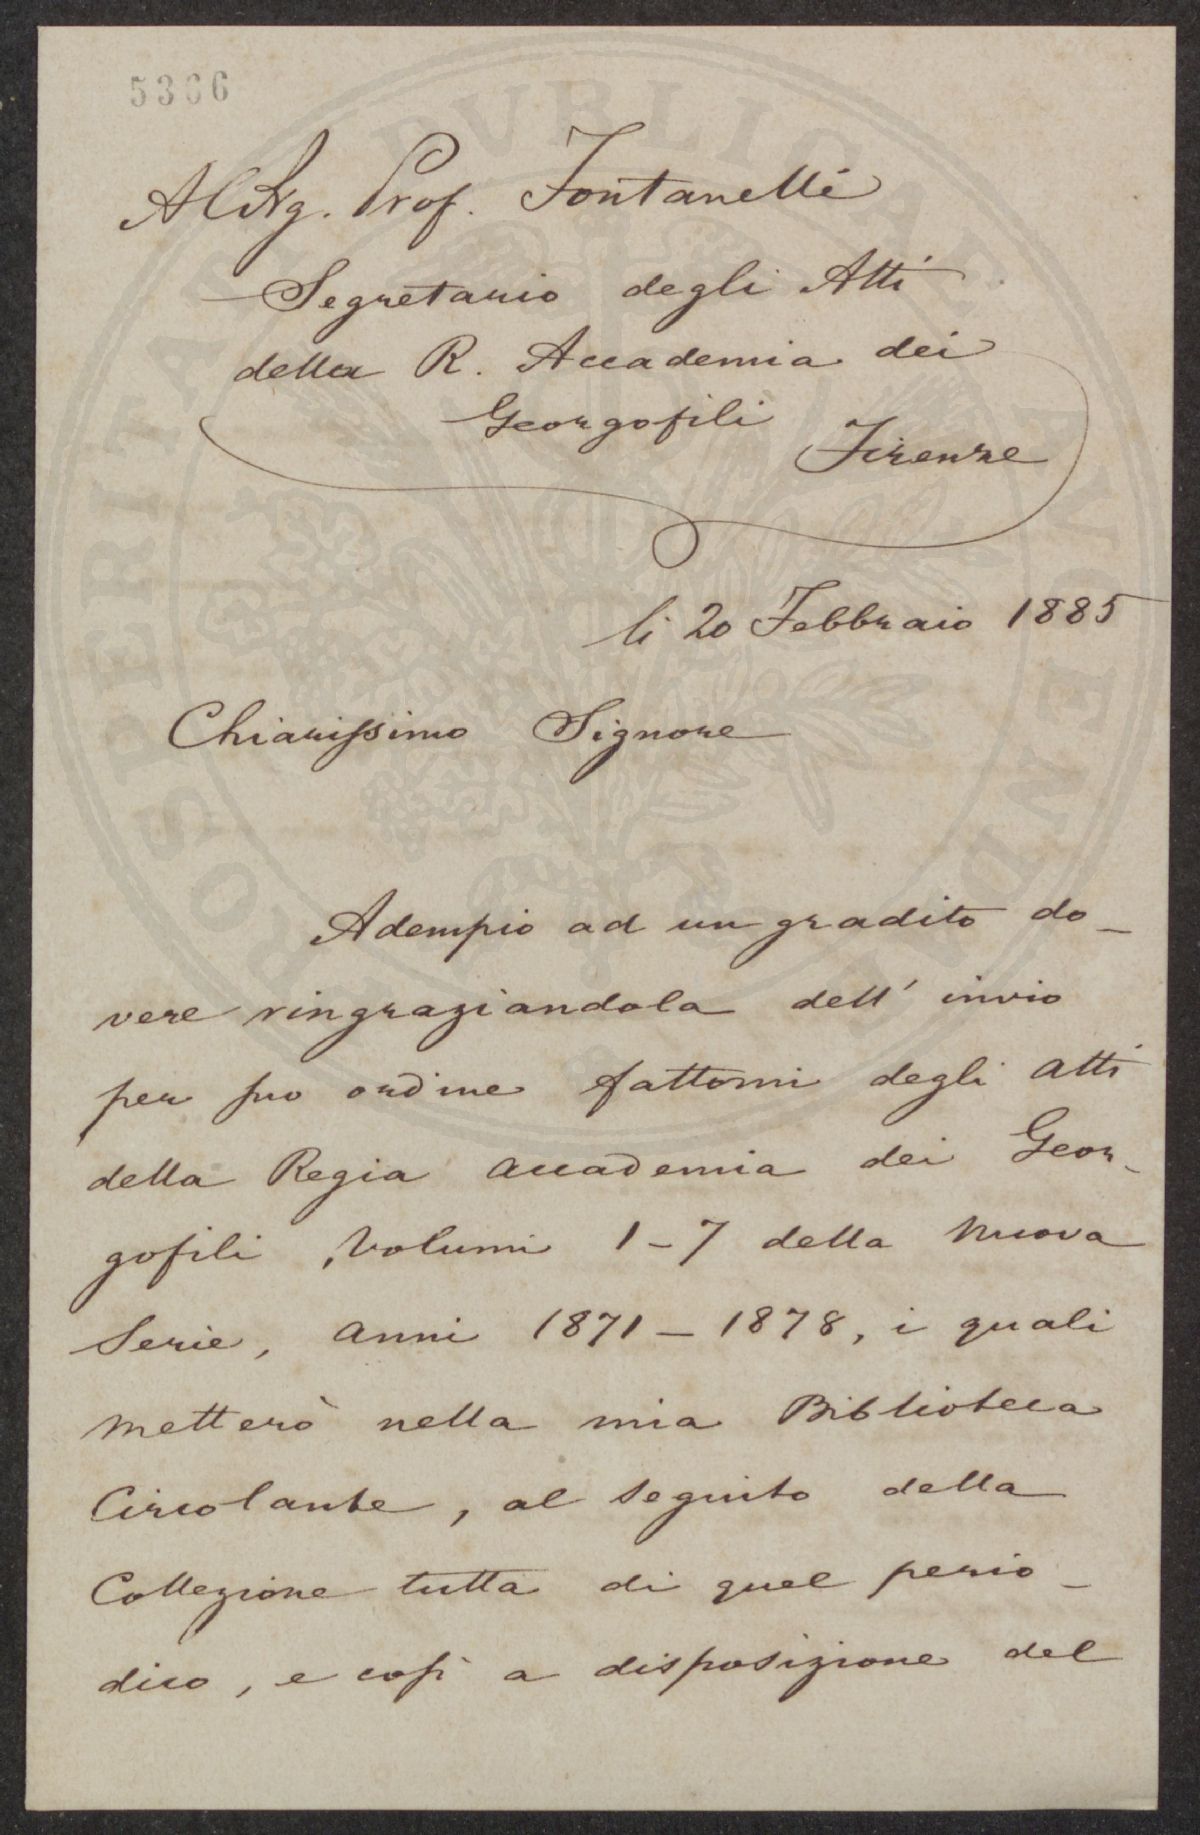 5366
Al Sig. Prof. Fontanelli
Segretario degli Atti
della R. Accademia dei
Georgofili
Firenze
li 20 Febbraio 1885
Chiarissimo Signore
Adempio ad un gradito do_
vere ringraziandola dell' invio
per suo ordine fattomi degli atti
della Regia accademia dei Geor_
gofili, Volumi 1_7 della nuova
Serie, anni 1871_1878, i quali
metterò nella mia Biblioteca
Circolante, al seguito della
Collezione tutta di quel perio_
dico, e così a disposizione del
PROSPERITATI PVBLICAE AVGENDAE